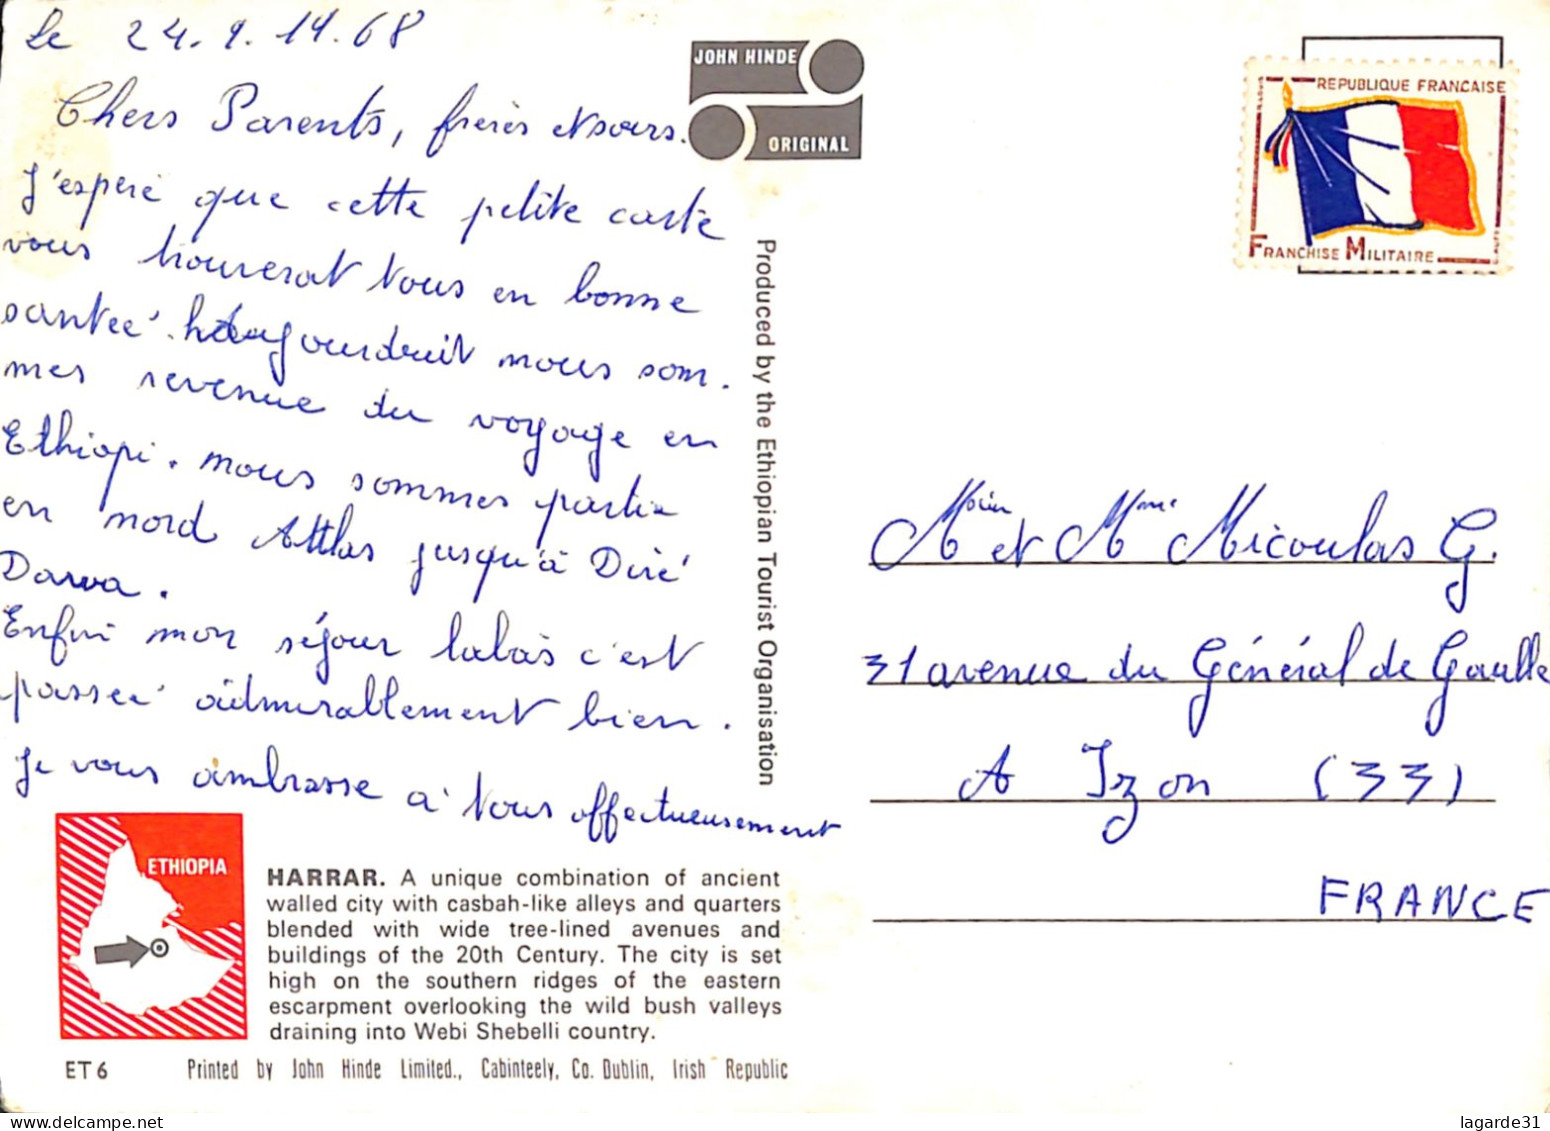 le 24.9.1968
Chers Parents, frères et sœurs.
J'espère que cette petite carte
vous trouverat tous en bonne
santeé. aujourdruit nous som.
mes revenue du voyage en
Ethiopi. nous sommes partie
en nord Attlas jusqu'à Diré
Darva.
Enfin mon séjour labas c'est
passeé admirablement bien.
Je vous ambrasse a tous affectueusement
JOHN HINDE
ORIGINAL
Produced by the Ethiopian Tourist Organisation
REPUBLIQUE FRANCAISE
FRANCHISE MILITAIRE
Msieur et Mme Micoulas G.
31 avenue du Général de Gaulle
A Izon (33)
FRANCE
ETHIOPIA
HARRAR. A unique combination of ancient
walled city with casbah-like alleys and quarters
blended with wide tree-lined avenues and
buildings of the 20th Century. The city is set
high on the southern ridges of the eastern
escarpment overlooking the wild bush valleys
draining into Webi Shebelli country.
ET 6
Printed by John Hinde Limited., Cabinteely, Co. Dublin, Irish Republic
lagarde31